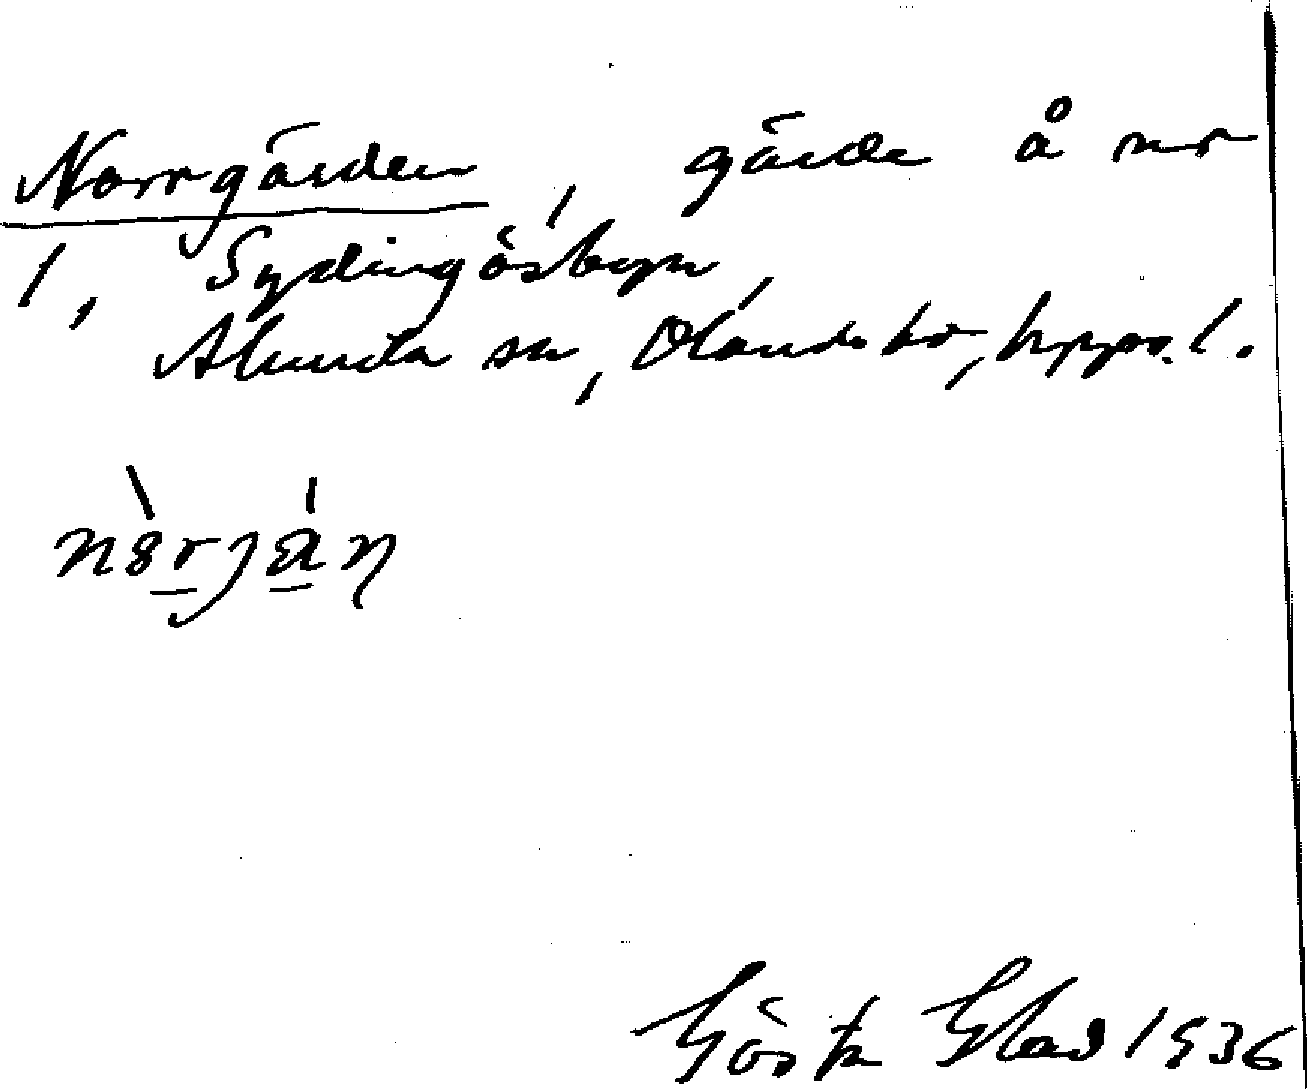 Norrgärden, gärde å nr
1, Sydingösbyn,
Alunda sn, Olands hd, Upps. l.
Gösta Glad 1936